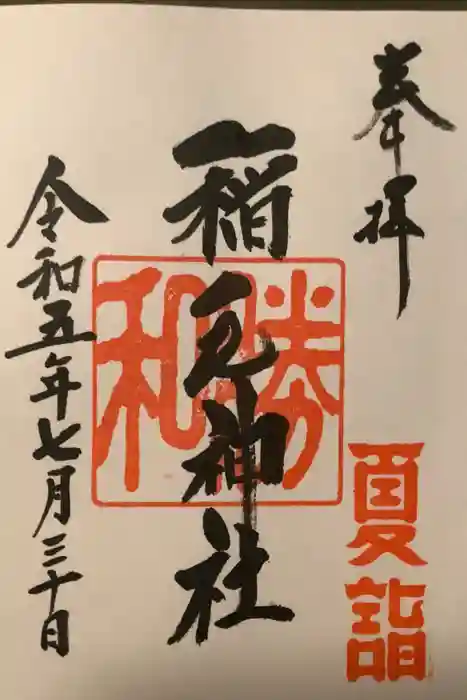 奉拝
夏詣
稲毛神社
勝
和
令和五年七月三十日